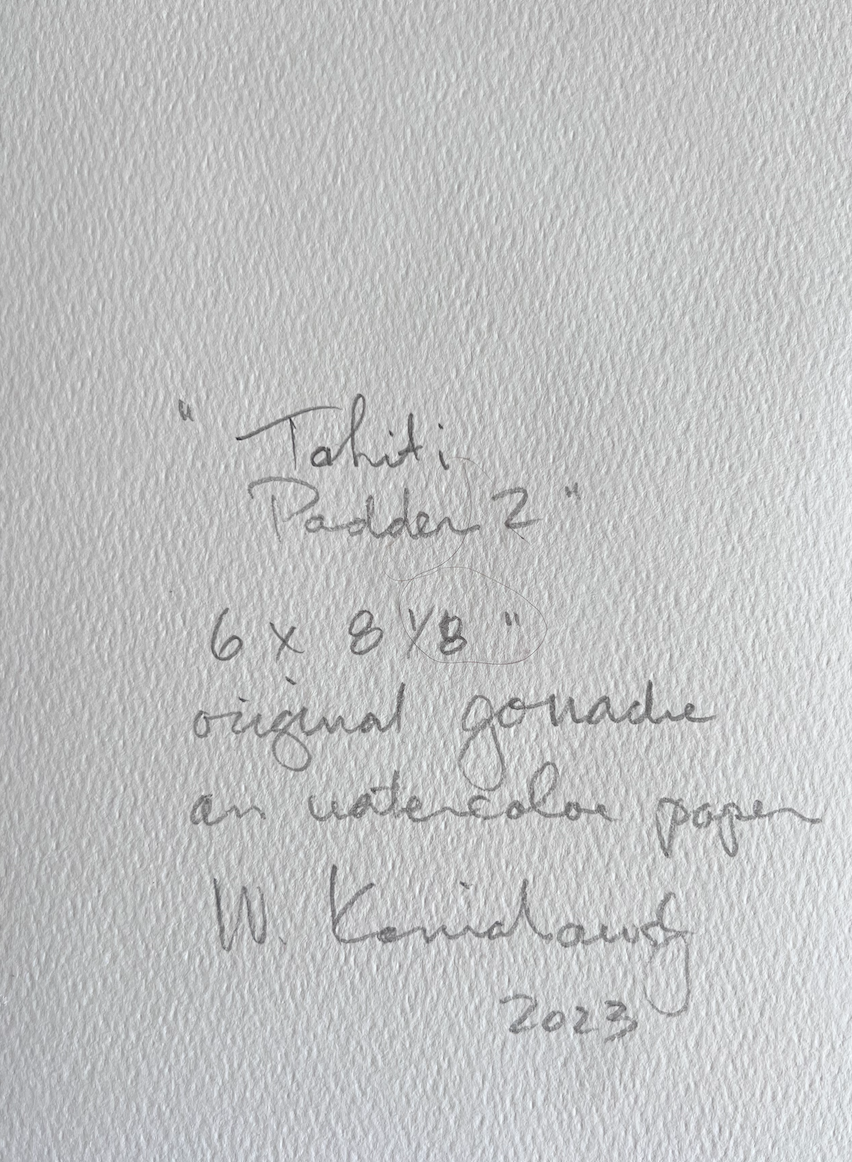 " Tahiti
Padder 2 "
6 x 8 1/8 "
original gouache
on watercolor paper
W.
2023